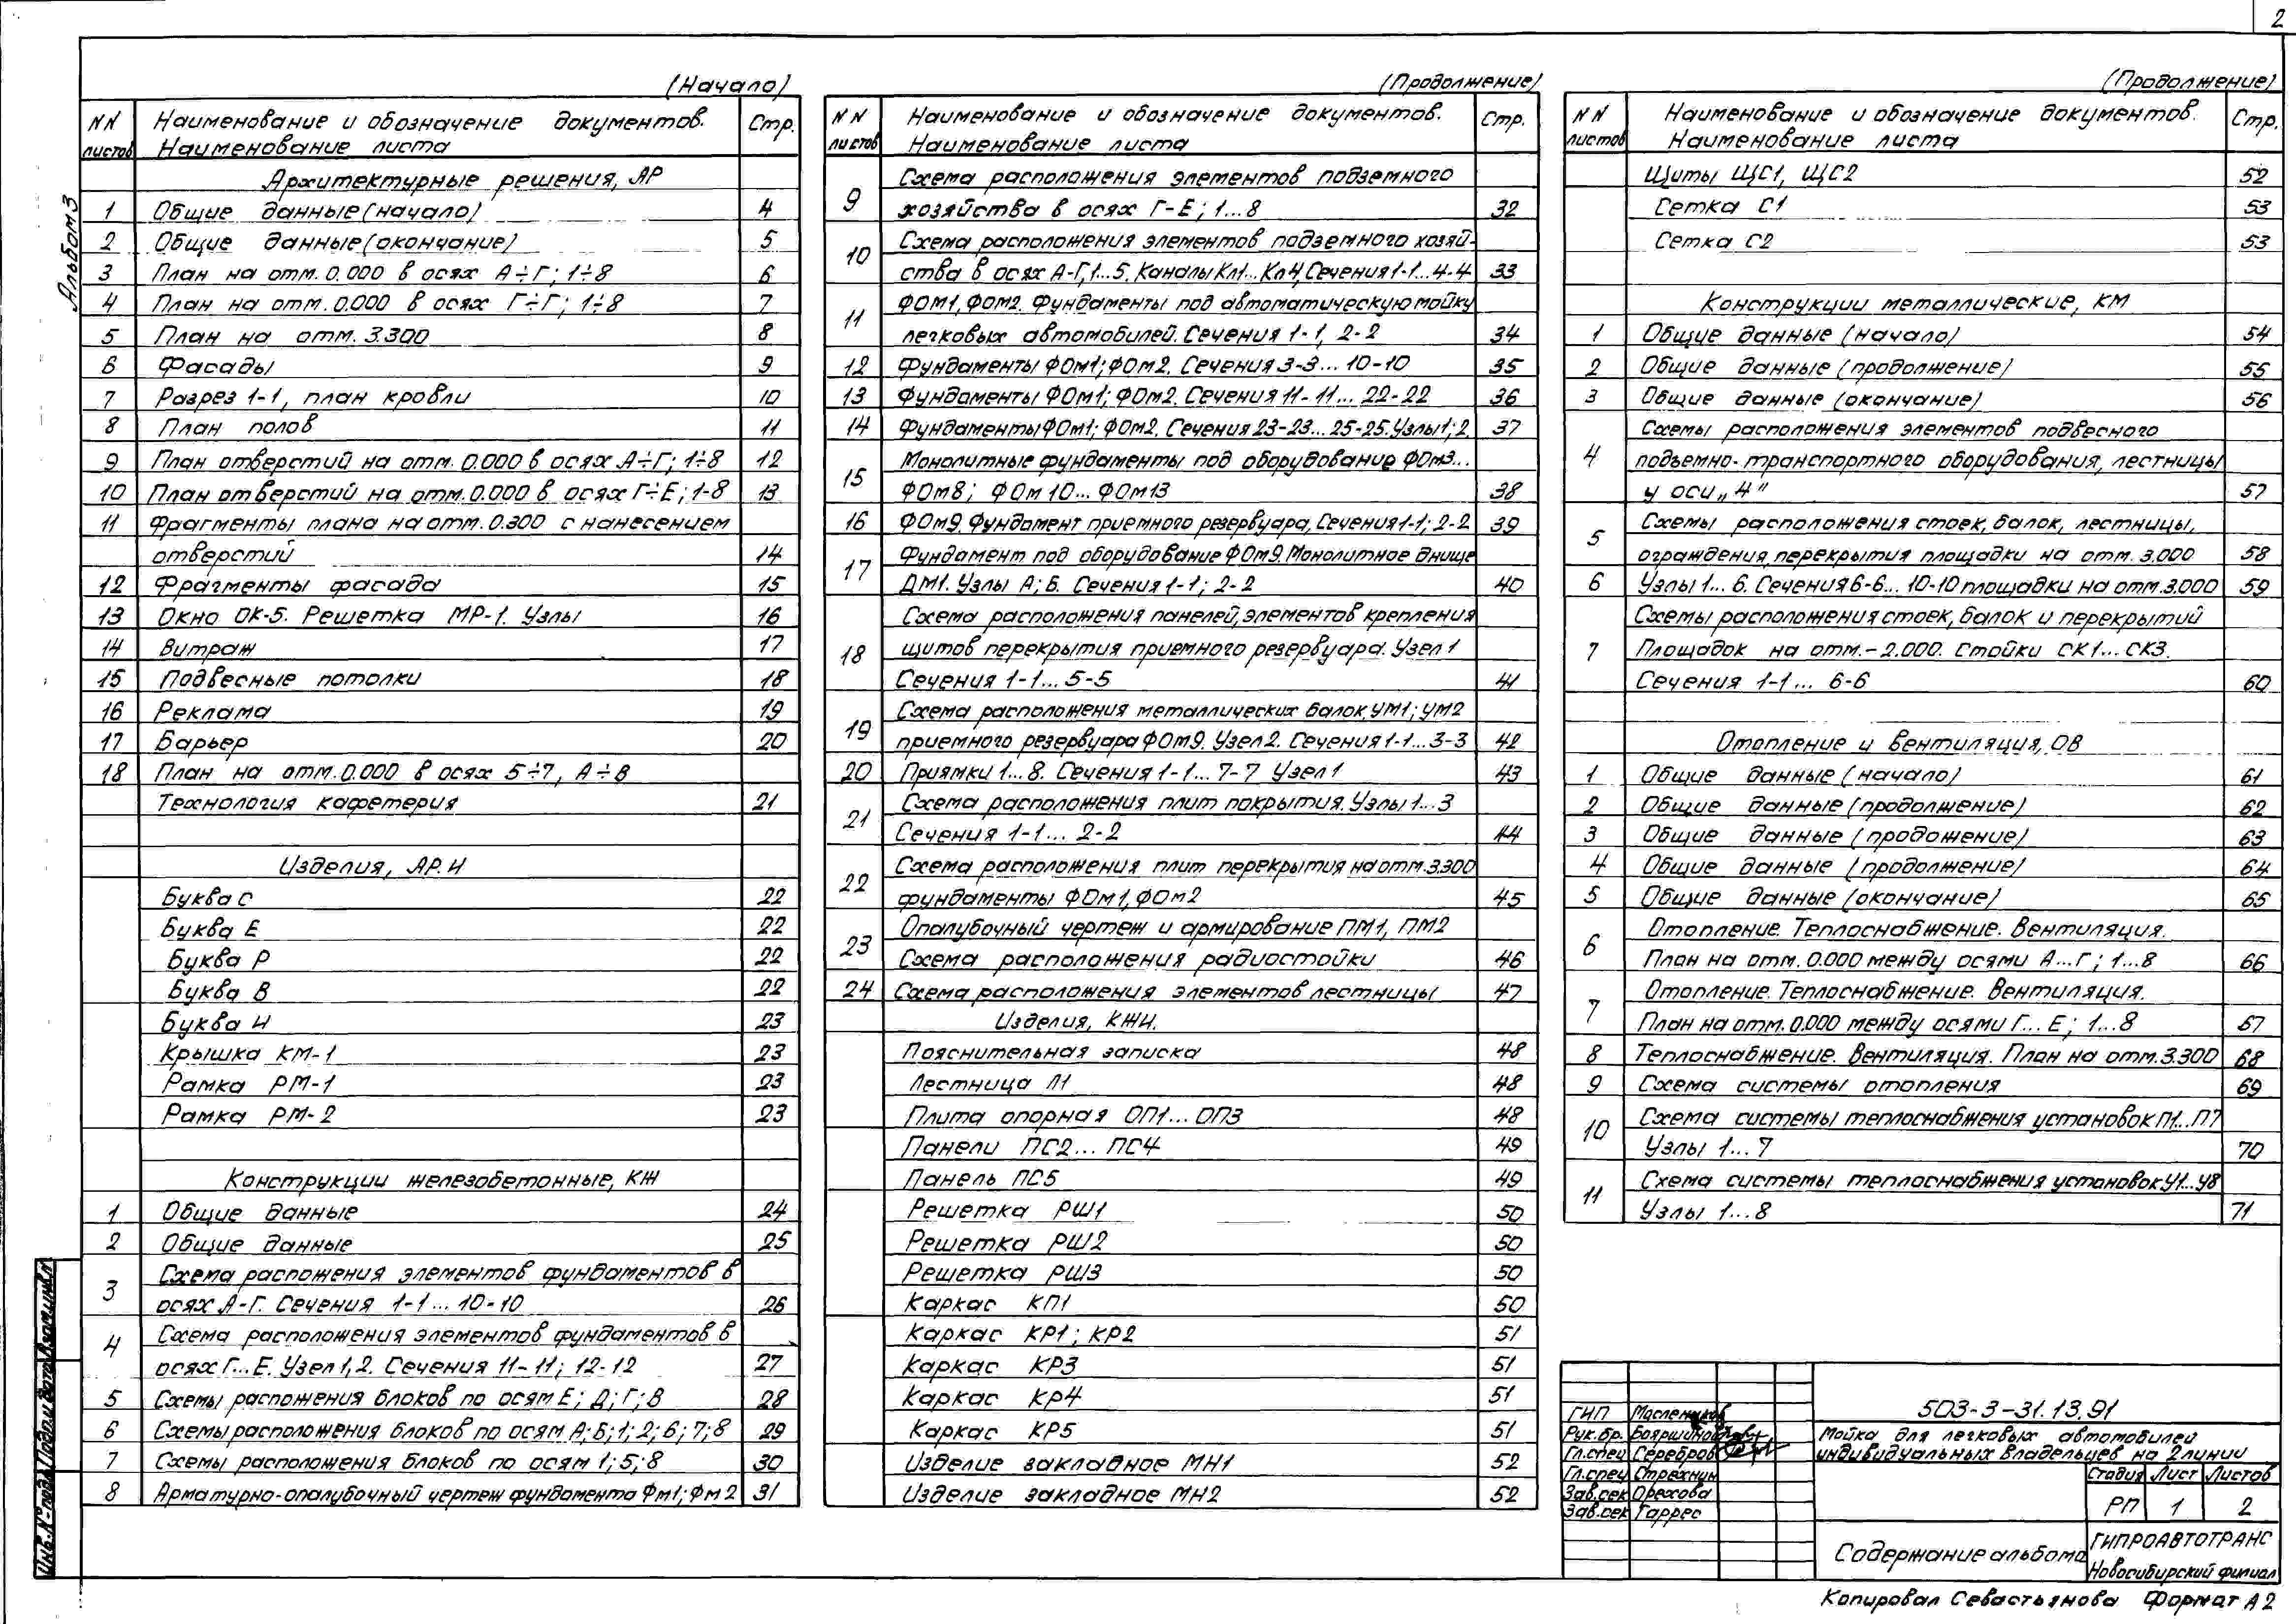 2
Альбом 3
(Начало)
NN листов Наименование и обозначение документов. Наименование листа Стр.
Архитектурные решения, АР
1 Общие данные (начало) 4
2 Общие данные (окончание) 5
3 План на отм. 0.000 в осях А÷Г; 1÷8 6
4 План на отм. 0.000 в осях Г÷Г; 1÷8 7
5 План на отм. 3.300 8
6 Фасады 9
7 Разрез 1-1, план кровли 10
8 План полов 11
9 План отверстий на отм. 0.000 в осях А÷Г; 1÷8 12
10 План отверстий на отм. 0.000 в осях Г÷Е; 1-8 13
11 Фрагменты плана на отм. 0.300 с нанесением
отверстий 14
12 Фрагменты фасада 15
13 Окно ОК-5. Решетка МР-1. Узлы 16
14 Витраж 17
15 Подвесные потолки 18
16 Реклама 19
17 Барьер 20
18 План на отм. 0.000 в осях 5÷7, А÷В
Технология кафетерия 21
Изделия, АР.И
Буква С 22
Буква Е 22
Буква Р 22
Буква В 22
Буква И 23
Крышка КМ-1 23
Рамка РМ-1 23
Рамка РМ-2 23
Конструкции железобетонные, КЖ
1 Общие данные 24
2 Общие данные 25
3 Схема распожения элементов фундаментов в
осях А-Г. Сечения 1-1... 10-10 26
4 Схема расположения элементов фундаментов в
осях Г...Е. Узел 1,2. Сечения 11-11; 12-12 27
5 Схемы распожения блоков по осям Е; Д; Г; В 28
6 Схемы расположения блоков по осям А; Б; 1; 2; 6; 7; 8 29
7 Схемы расположения блоков по осям 1; 5; 8 30
8 Арматурно-опалубочный чертеж фундамента Фм1; Фм2 31
(Продолжение)
NN листов Наименование и обозначение документов. Наименование листа Стр.
9 Схема расположения элементов подземного
хозяйства в осях Г-Е; 1...8 32
10 Схема расположения элементов подземного хозяй-
ства в осях А-Г, 1...5. Каналы Кл1... Кл4, Сечения 1-1... 4-4 33
11 ФОм1, ФОм2. Фундаменты под автоматическую мойку
легковых автомобилей. Сечения 1-1, 2-2 34
12 Фундаменты ФОм1; ФОм2. Сечения 3-3... 10-10 35
13 Фундаменты ФОм1; ФОм2. Сечения 11-11... 22-22 36
14 Фундаменты ФОм1; ФОм2. Сечения 23-23... 25-25. Узлы 1; 2 37
15 Монолитные фундаменты под оборудование ФОм3...
ФОм8; ФОм10... ФОм13 38
16 ФОм9. Фундамент приемного резервуара, Сечения 1-1; 2-2 39
17 Фундамент под оборудование ФОм9. Монолитное днище
ДМ1. Узлы А; Б. Сечения 1-1; 2-2 40
18 Схема расположения панелей, элементов крепления
щитов перекрытия приемного резервуара. Узел 1
Сечения 1-1... 5-5 41
19 Схема расположения металлических балок, УМ1; УМ2
приемного резервуара ФОм9. Узел 2. Сечения 1-1... 3-3 42
20 Приямки 1...8. Сечения 1-1... 7-7 Узел 1 43
21 Схема расположения плит покрытия. Узлы 1...3
Сечения 1-1... 2-2 44
22 Схема расположения плит перекрытия на отм. 3.300
фундаменты ФОм1, ФОм2 45
23 Опалубочный чертеж и армирование ПМ1, ПМ2
Схема расположения радиостойки 46
24 Схема расположения элементов лестницы 47
Изделия, КЖИ.
Пояснительная записка 48
Лестница Л1 48
Плита опорная ОП1... ОП3 48
Панели ПС2... ПС4 49
Панель ПС5 49
Решетка РШ1 50
Решетка РШ2 50
Решетка РШ3 50
Каркас КП1 50
Каркас КР1; КР2 51
Каркас КР3 51
Каркас КР4 51
Каркас КР5 51
Изделие закладное МН1 52
Изделие закладное МН2 52
(Продолжение)
NN листов Наименование и обозначение документов. Наименование листа Стр.
Щиты ЩС1, ЩС2 52
Сетка С1 53
Сетка С2 53
Конструкции металлические, КМ
1 Общие данные (начало) 54
2 Общие данные (продолжение) 55
3 Общие данные (окончание) 56
4 Схемы расположения элементов подвесного
подъемно-транспортного оборудования, лестницы
у оси „4" 57
5 Схемы расположения стоек, балок, лестницы,
ограждения, перекрытия площадки на отм. 3.000 58
6 Узлы 1... 6. Сечения 6-6... 10-10 площадки на отм. 3.000 59
7 Схемы расположения стоек, балок и перекрытий
Площадок на отм. -2.000. Стойки СК1... СК3.
Сечения 1-1... 6-6 60
Отопление и вентиляция, ОВ
1 Общие данные (начало) 61
2 Общие данные (продолжение) 62
3 Общие данные (продожение) 63
4 Общие данные (продолжение) 64
5 Общие данные (окончание) 65
6 Отопление. Теплоснабжение. Вентиляция.
План на отм. 0.000 между осями А...Г; 1...8 66
7 Отопление. Теплоснабжение. Вентиляция.
План на отм. 0.000 между осями Г... Е; 1...8 67
8 Теплоснабжение. Вентиляция. План на отм. 3.300 68
9 Схема системы отопления 69
10 Схема системы теплоснабжения установок П1...П7
Узлы 1...7 70
11 Схема системы теплоснабжения установок У1...У8
Узлы 1...8 71
ГИП Маслеников
Рук.бр. Бояршинов
Гл.спец Серебров
Гл.спец Стрехнин
Зав.сек Орехова
Зав.сек Гаррес
503-3-31.13.91
Мойка для легковых автомобилей
индивидуальных владельцев на 2 линии
Стадия Лист Листов
РП 1 2
Содержание альбома
ГИПРОАВТОТРАНС
Новосибирский филиал
Копировал Севастьянова Формат А2
Инв. № подл. Подп. и дата Взам.инв.№